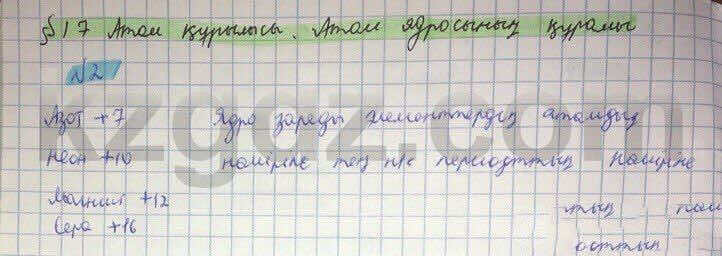 §17 Атом құрылысы. Атом ядросының құрамы
№2
Азот +7 Ядро заряды элементтердің атомдық
Неон +10 нөміріне тең н/е периодттың нөміріне
Магний +12 тың нөм
Сера +16 осттың
kzgdz.com